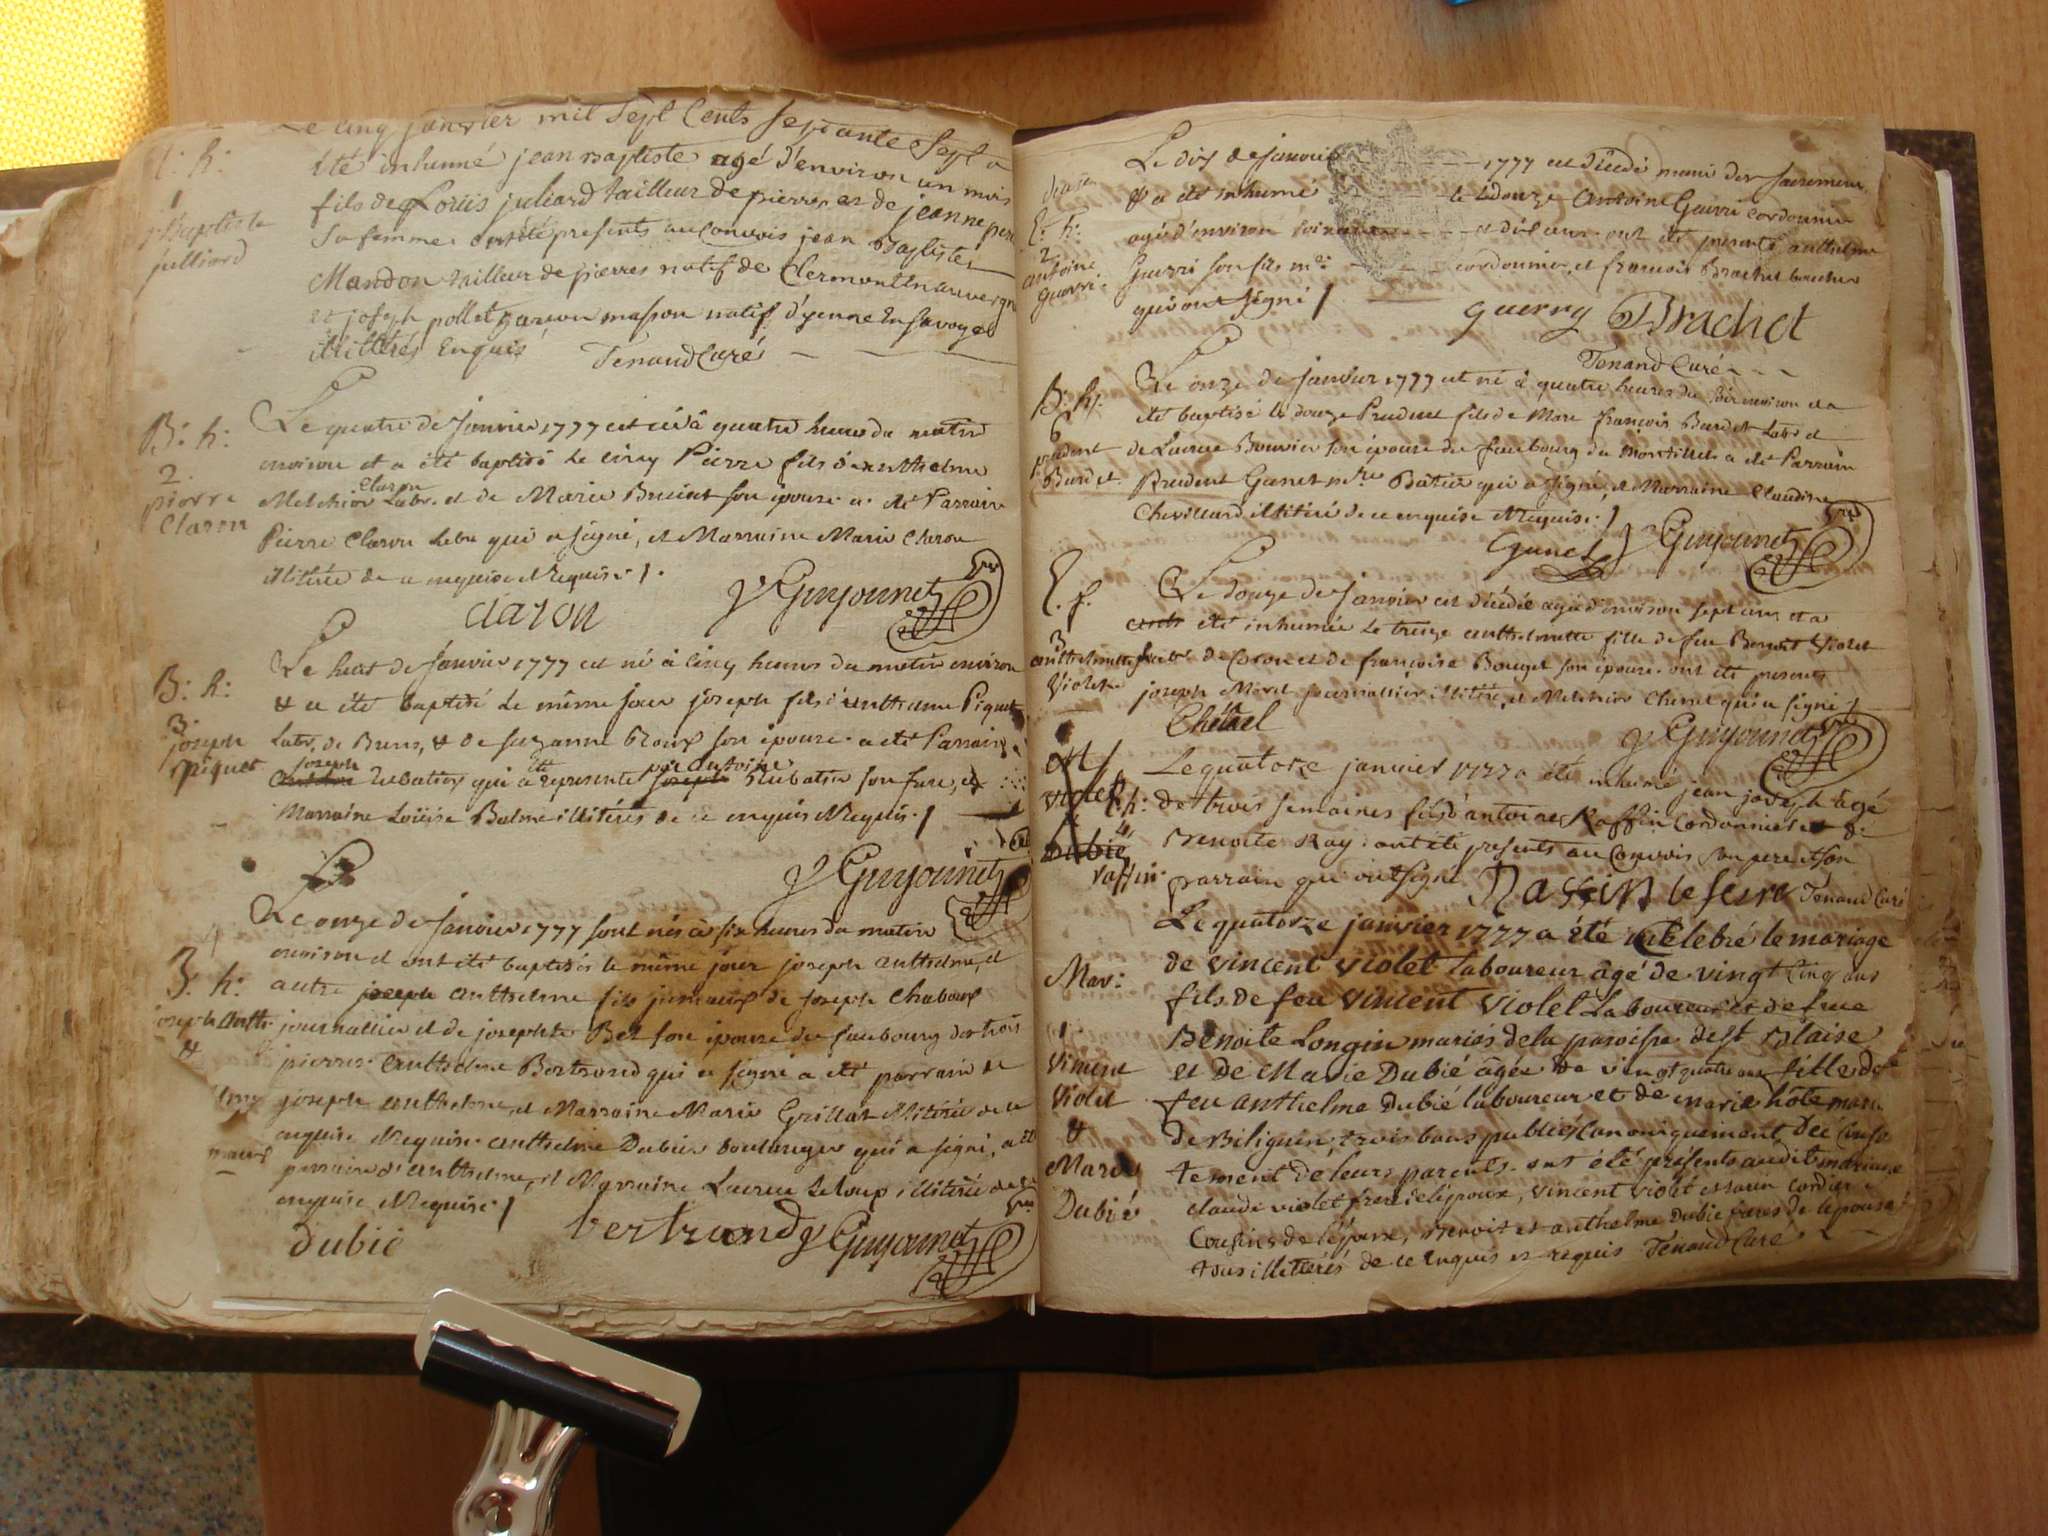 Le cinq janvier mil sept cents septante sept a
E: h:
1
Baptiste
julliard
été inhumé jean Baptiste agé d'environ un mois
fils de Loüis juliard tailleur de pierres et de jeanne
sa femme. ont été presents au Convois jean Baptiste
Mandon tailleur de pierres natif de Clermont En auvergne
et joseph pollet garçon masson natif d'yenne En savoye
illitterés Enquis Tenand Curé
B: h:
2
pierre
Claron
Le quatre de Janvier 1777 est né à quatre heures du matin
environ et a été baptisé le cinq Pierre fils d'anthelme
Melchior Claron Labr. et de Marie son épouse. a été Parrain
Pierre Claron Labr qui a signé, et Marraine Marie Claron
illitérée de ce enquise et Requise./.
claron Guyounet
B: h:
3
joseph
piquet
Le huit de Janvier 1777 est né à cinq heures du matin environ
& a été baptisé le même jour joseph fils d'anthelme Piquet
Labr. de Brens, & de suzanne Roux son épouse. a été Parrain
joseph Rubatier qui a été représenté par antoine Rubatier son frere, et
Marraine Loüise Balme illitérés de ce enquis et Requis./
Guyounet
B. h:
joseph anth:
&
Le onze de Janvier 1777 sont nés à six heures du matin
environ et ont été baptisés le même jour joseph anthelme, et
autre joseph anthelme fils jumeaux de joseph Chaboux
journallier et de josephte Bez son épouse du faubourg des trois
pierres. anthelme Bertrand qui a signé a été parrain de
joseph anthelme, et Marraine Marie Grillat illitérée de ce
enquise et Requise. anthelme Dubier boulanger qui a signé, a été
parrain d'anthelme, et Marraine Lucrece Leloup illitérée de ce
enquise et Requise./
dubié bertrand Guyounet
E. h:
2
antoine
guerri.
Le dix de Janvier 1777 est décédé muni des sacremens
& a été inhumé le douze Antoine Guerri cordonnier
agé d'environ soixante et dix ans. ont été presents anthelme
Guerri son fils me cordonnier, et françois Brachet boucher
qui ont signé /
guerry Brachet
Tenand Curé
B: h:
prudent
Burdet
Le onze de Janvier 1777 est né à quatre heures du soir environ et a
été baptisé le douze Prudent fils de Marc françois Burdet Labr et
de Lucrece Bouvier son épouse du faubourg du Montillet. a été Parrain
Prudent Ganet qui a signé, et Marraine Claudine
Chevillard illitérée de ce enquise et Requise./
Ganet Guyounet
E. f.
3
anthelmette
Violet
Le douze de Janvier est décédée agée d'environ sept ans et a
été inhumée le treize anthelmette fille de feu Benoit Violet
Labr de Coron et de françoise Bouget son épouse. ont été presents
joseph Morel journallier illitéré, et Melchior Chetel qui a signé /
Chétel Guyounet
violet
E. h:
4
Dubié
raffin
Le quatorze janvier 1777 a été inhumé jean joseph âgé
de trois semaines fils d'antoine Raffin Cordonnier et de
Benoite Ray. ont été presents au Convois son pere et son
parrain qui ont signé. Raffin Tenand Curé
Mar:
1
Vincent
Violet
&
Marie
Dubié
Le quatorze janvier 1777 a été Célebré le mariage
de vincent violet laboureur âgé de vingt cinq ans
fils de feu vincent violet laboureur et de feue
Benoite Longin mariés de la paroisse de st Blaise
et de Marie Dubié âgée de vingt quatre ans fille de
feu anthelme Dubié laboureur et de marie hôte mariés
de Biliguin; trois bans publiés Canoniquement du Consen
tement de leurs parents. ont été présents audit mariage
claude violet frere de l'époux, vincent violet cordier
Cousins de l'époux, Benoit et anthelme Dubie freres de l'épouse
tous illitterés de ce Enquis et requis Tenand Curé.